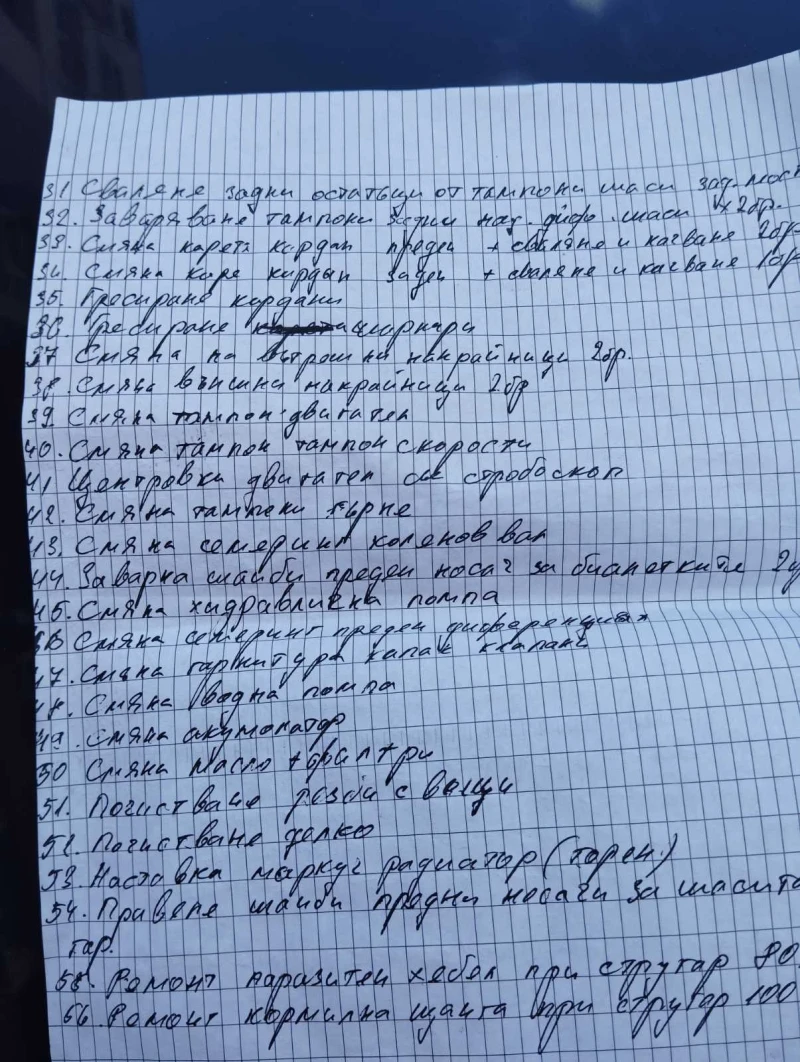 31 Сваляне задни остатъци от тампони шаси зад. мост
32. Заваряване тампони задни диф. шаси x 2бр.
33. Смяна карета кардан преден + сваляне и качване 2бр
34. Смяна каре кардан заден + сваляне и качване 1бр
35. Гресиране кардани
36. Гресиране шарнири
37 Смяна на вътрешни накрайници 2бр.
38. Смяна външни накрайници 2бр
39. Смяна тампон двигател
40. Смяна тампон тампон скорости
41 Центровка двигател със стробоскоп
42. Смяна тампони гърне
43. Смяна семеринг коленов вал
44. Заварка шайби преден носач за биалетките 2
45. Смяна хидравлична помпа
46 Смяна семеринг преден диференциал
47. Смяна гарнитура капак клапани
48. Смяна водна помпа
49. Смяна акумолатор
50 Смяна масло + филтри
51. Почистване резби с
52. Почистване
53. Наставка маркуч радиатор (горен)
54. Правене шайби предни носачи за
гар.
55. Ремонт паразитен при стругар 80
56. Ремонт кормилна щанга при стругар 100